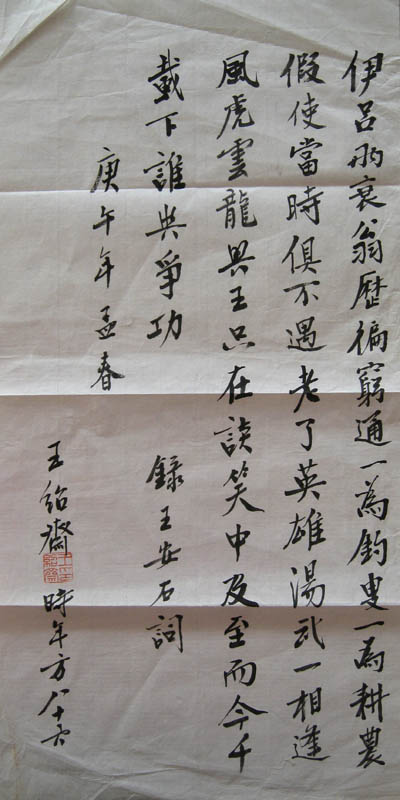 伊呂兩衰翁歷徧窮通一為釣叟一為耕農
假使當時俱不遇老了英雄湯武一相逢
風虎雲龍興王只在談笑中及至而今千
載下誰與爭功
錄王安石詞
庚午年孟春
王紹齋
時年方八十六